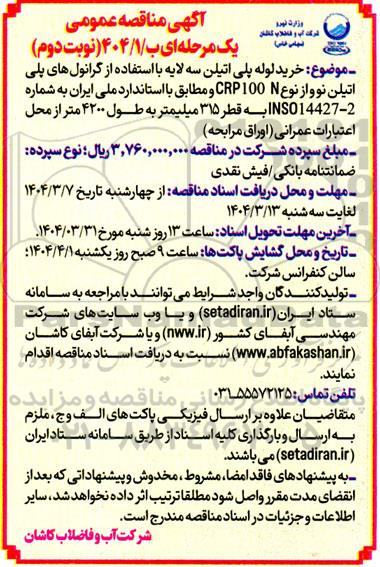 آگهی مناقصه عمومی
یک مرحله‌ای ب/۴۰۴/۱ (نوبت دوم)
وزارت نیرو
شرکت آب و فاضلاب کاشان
(سهامی خاص)
ـ موضوع: خرید لوله پلی اتیلن سه لایه با استفاده از گرانول‌های پلی
اتیلن نو و از نوع CRP100 N و مطابق با استاندارد ملی ایران به شماره
INSO14427-2 به قطر ۳۱۵ میلیمتر به طول ۴۲۰۰ متر از محل
اعتبارات عمرانی (اوراق مرابحه)
ـ مبلغ سپرده شرکت در مناقصه ۳,۷۶۰,۰۰۰,۰۰۰ ریال؛ نوع سپرده:
ضمانتنامه بانکی/فیش نقدی
ـ مهلت و محل دریافت اسناد مناقصه: از چهارشنبه تاریخ ۱۴۰۴/۳/۷
لغایت سه شنبه ۱۴۰۴/۳/۱۳
ـ آخرین مهلت تحویل اسناد: ساعت ۱۳ روز شنبه مورخ ۱۴۰۴/۰۳/۳۱.
ـ تاریخ و محل گشایش پاکت‌ها: ساعت ۹ صبح روز یکشنبه ۱۴۰۴/۴/۱؛
سالن کنفرانس شرکت.
ـ تولیدکنندگان واجد شرایط می توانند با مراجعه به سامانه
ستاد ایران (setadiran.ir) و یا وب سایت‌های شرکت
مهندسی آبفای کشور (nww.ir) و یا شرکت آبفای کاشان
(www.abfakashan.ir) نسبت به دریافت اسناد مناقصه اقدام
نمایند.
تلفن تماس: ۰۳۱-۵۵۵۷۲۱۲۵
متقاضیان علاوه بر ارسال فیزیکی پاکت های الف و ج، ملزم
به ارسال و بارگذاری کلیه اسناد از طریق سامانه ستاد ایران
(setadiran.ir) می باشند.
ـ به پیشنهادهای فاقد امضا، مشروط، مخدوش و پیشنهاداتی که بعد از
انقضای مدت مقرر واصل شود مطلقا ترتیب اثر داده نخواهد شد، سایر
اطلاعات و جزئیات در اسناد مناقصه مندرج است.
شرکت آب و فاضلاب کاشان